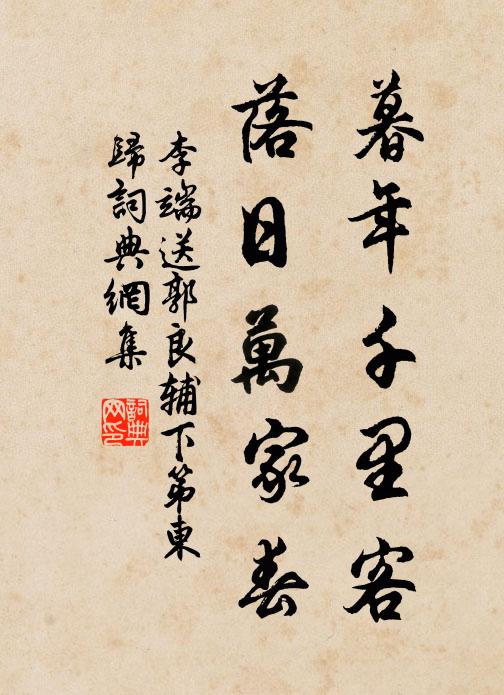 暮年千里客
落日萬家春
李端送郭良輔下第東
歸詞典網集
詞典
网印